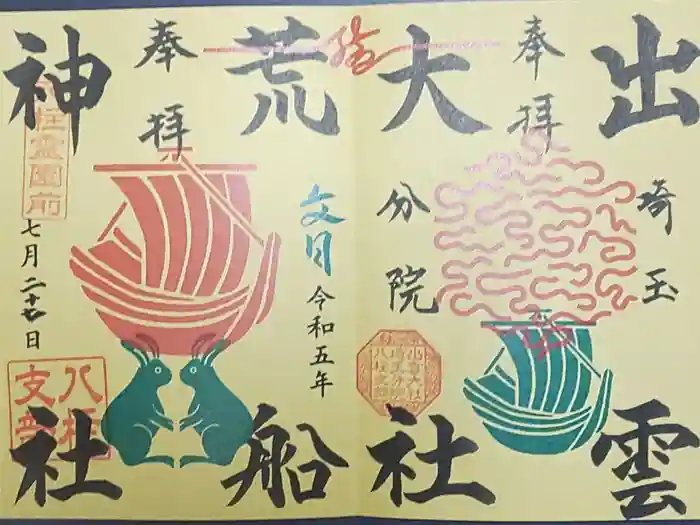 出雲
埼玉
奉拝
大社
分院
荒船
文月
令和五年
奉拝
神社
七月二十七日
霊園前
八柱
支部